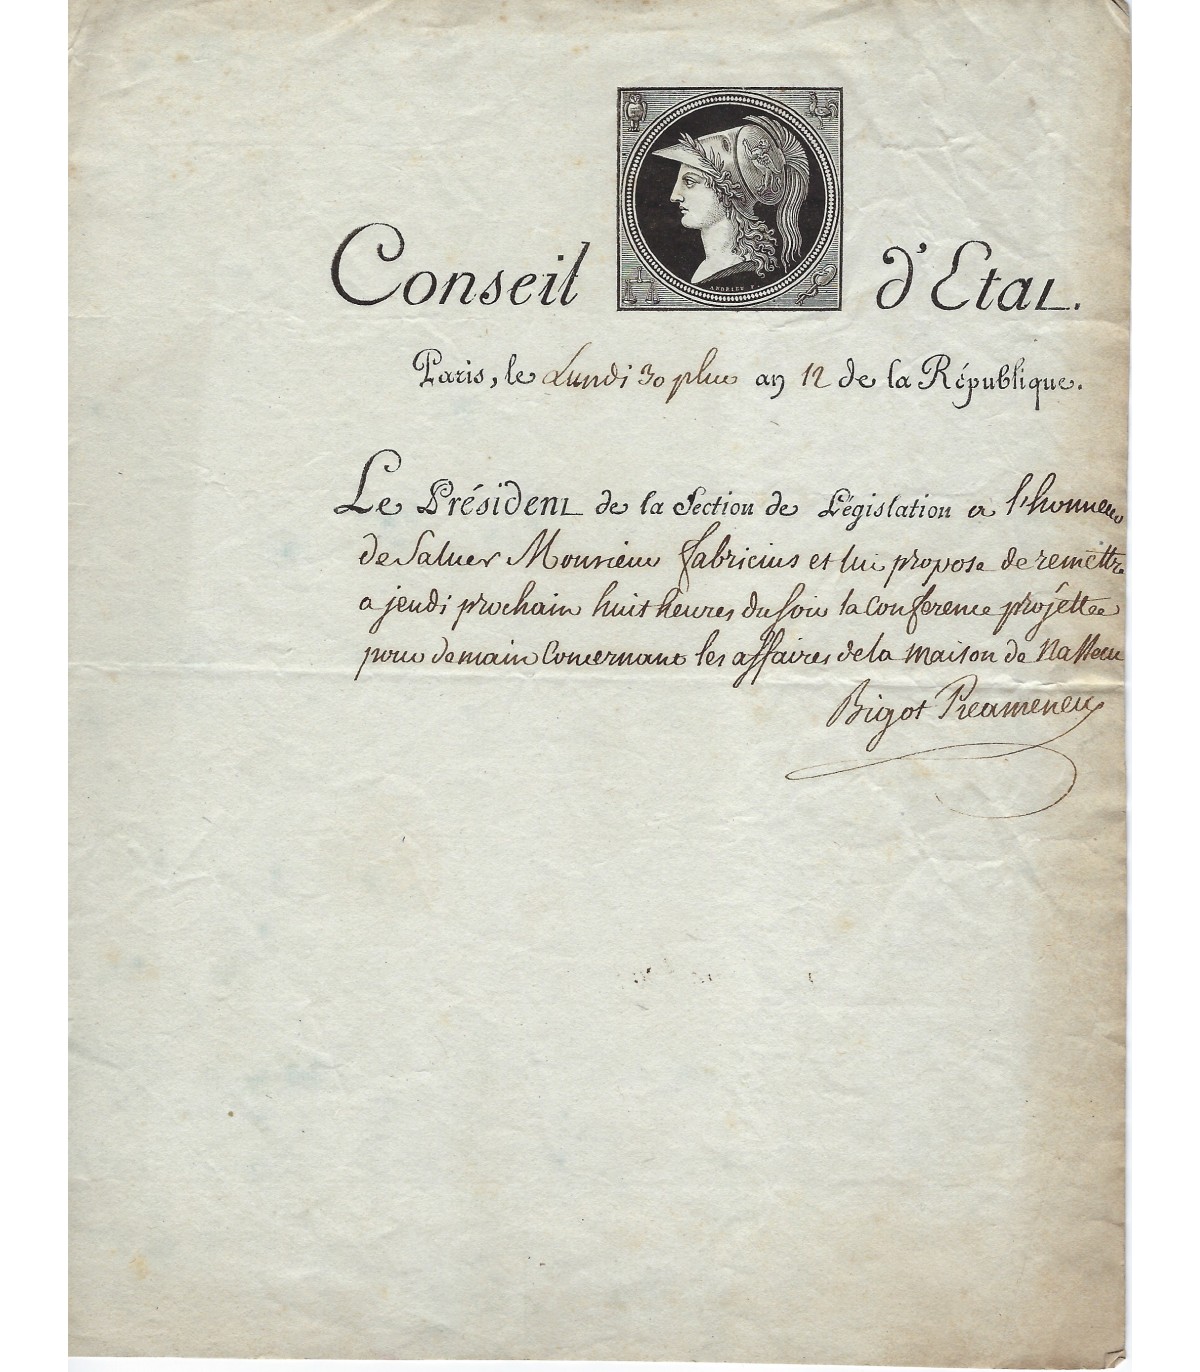 Conseil d'Etat.
ANDRIEU F.
Paris, le Lundi 30 pluv an 12 de la République.
Le Président de la Section de Législation a l'honneur
de Saluer Monsieur fabricius et lui propose de remettre
a jeudi prochain huit heures du soir la conference projettée
pour demain concernant les affaires de la maison de Nassau
Bigot Preameneu